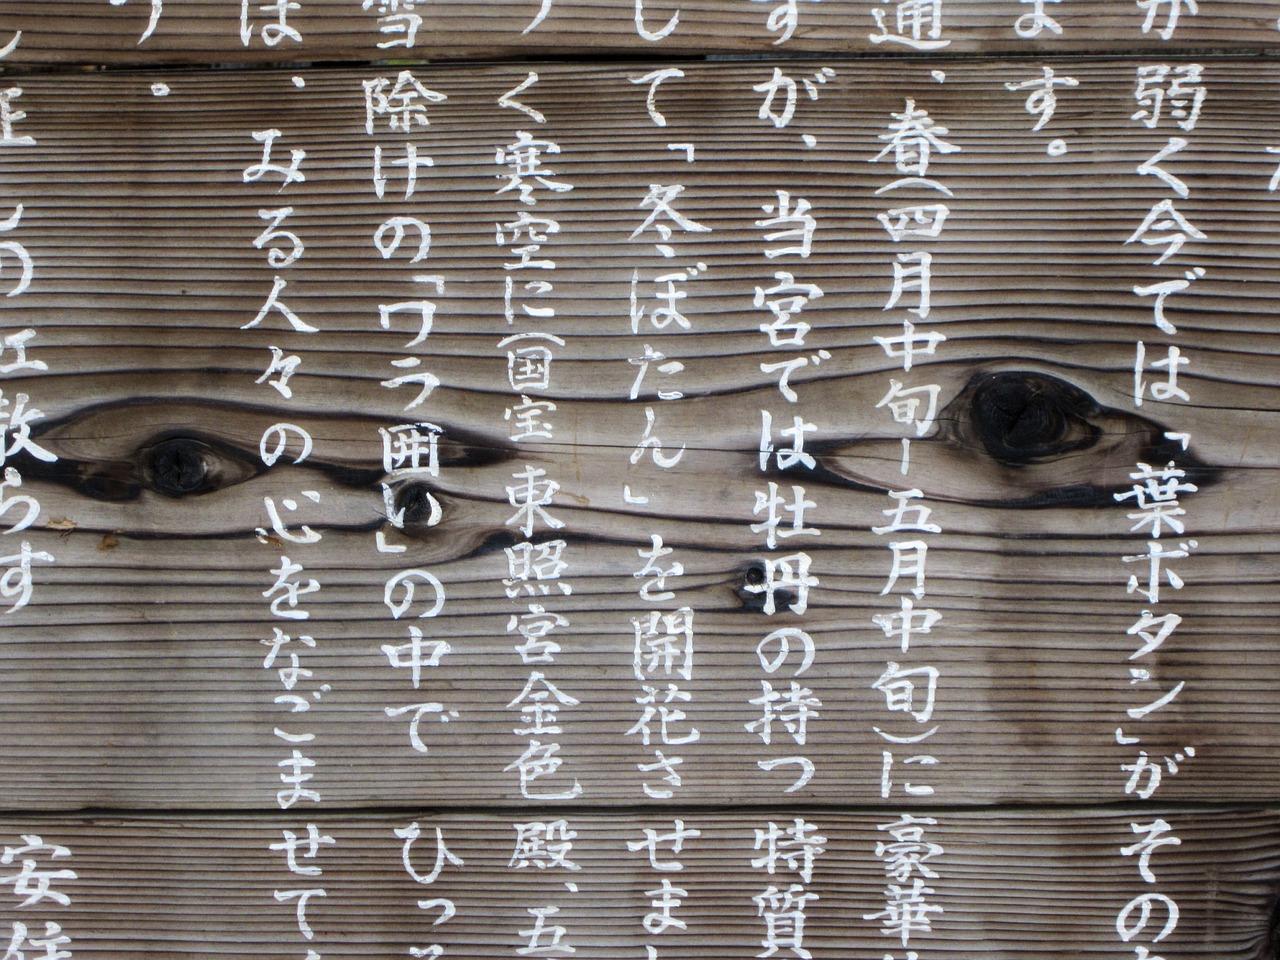 弱く今では「葉ボタン」がその
す。
通、春(四月中旬ー五月中旬)に豪華
すが、当宮では牡丹の持つ特質
して「冬ぼたん」を開花させま
く寒空に(国宝東照宮金色殿、五
雪除けの「ワラ囲い」の中でひっそ
は、みる人々の心をなごませて
。
散らす 安住